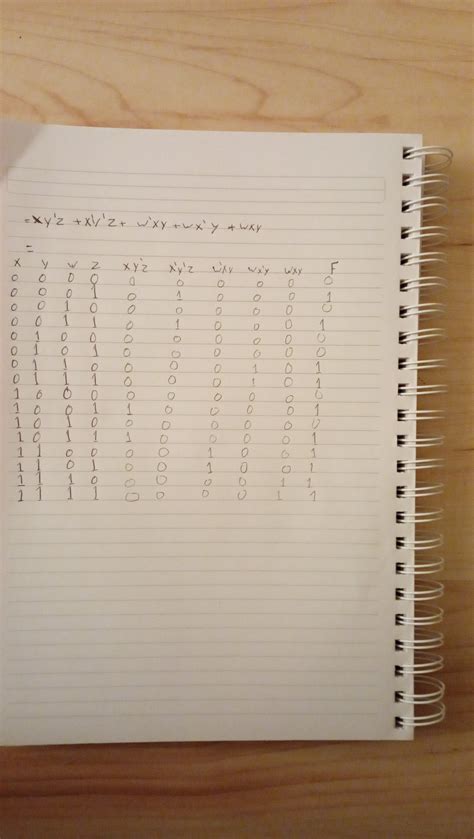 = xy'z + x'y'z + w'xy + wx'y + wxy
=
x y w z xy'z x'y'z w'xy wx'y wxy F
0 0 0 0 0 0 0 0 0 0
0 0 0 1 0 1 0 0 0 1
0 0 1 0 0 0 0 0 0 0
0 0 1 1 0 1 0 0 0 1
0 1 0 0 0 0 0 0 0 0
0 1 0 1 0 0 0 0 0 0
0 1 1 0 0 0 0 1 0 1
0 1 1 1 0 0 0 1 0 1
1 0 0 0 0 0 0 0 0 0
1 0 0 1 1 0 0 0 0 1
1 0 1 0 0 0 0 0 0 0
1 0 1 1 1 0 0 0 0 1
1 1 0 0 0 0 1 0 0 1
1 1 0 1 0 0 1 0 0 1
1 1 1 0 0 0 0 0 1 1
1 1 1 1 0 0 0 0 1 1